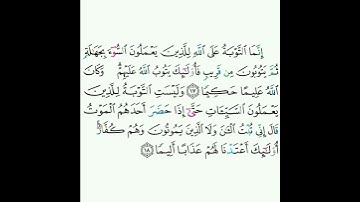 إِنَّمَا التَّوْبَةُ عَلَى اللَّهِ لِلَّذِينَ يَعْمَلُونَ السُّوءَ بِجَهَالَةٍ
ثُمَّ يَتُوبُونَ مِن قَرِيبٍ فَأُولَٰئِكَ يَتُوبُ اللَّهُ عَلَيْهِمْ ۗ وَكَانَ
اللَّهُ عَلِيمًا حَكِيمًا ١٧ وَلَيْسَتِ التَّوْبَةُ لِلَّذِينَ
يَعْمَلُونَ السَّيِّئَاتِ حَتَّىٰ إِذَا حَضَرَ أَحَدَهُمُ الْمَوْتُ
قَالَ إِنِّي تُبْتُ الْآنَ وَلَا الَّذِينَ يَمُوتُونَ وَهُمْ كُفَّارٌ ۚ
أُولَٰئِكَ أَعْتَدْنَا لَهُمْ عَذَابًا أَلِيمًا ١٨